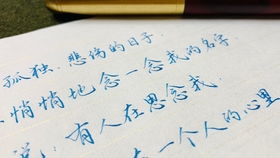 孤独、悲伤的日子
悄悄地念一念我的名字
说：有人在思念我
在一个人的心里